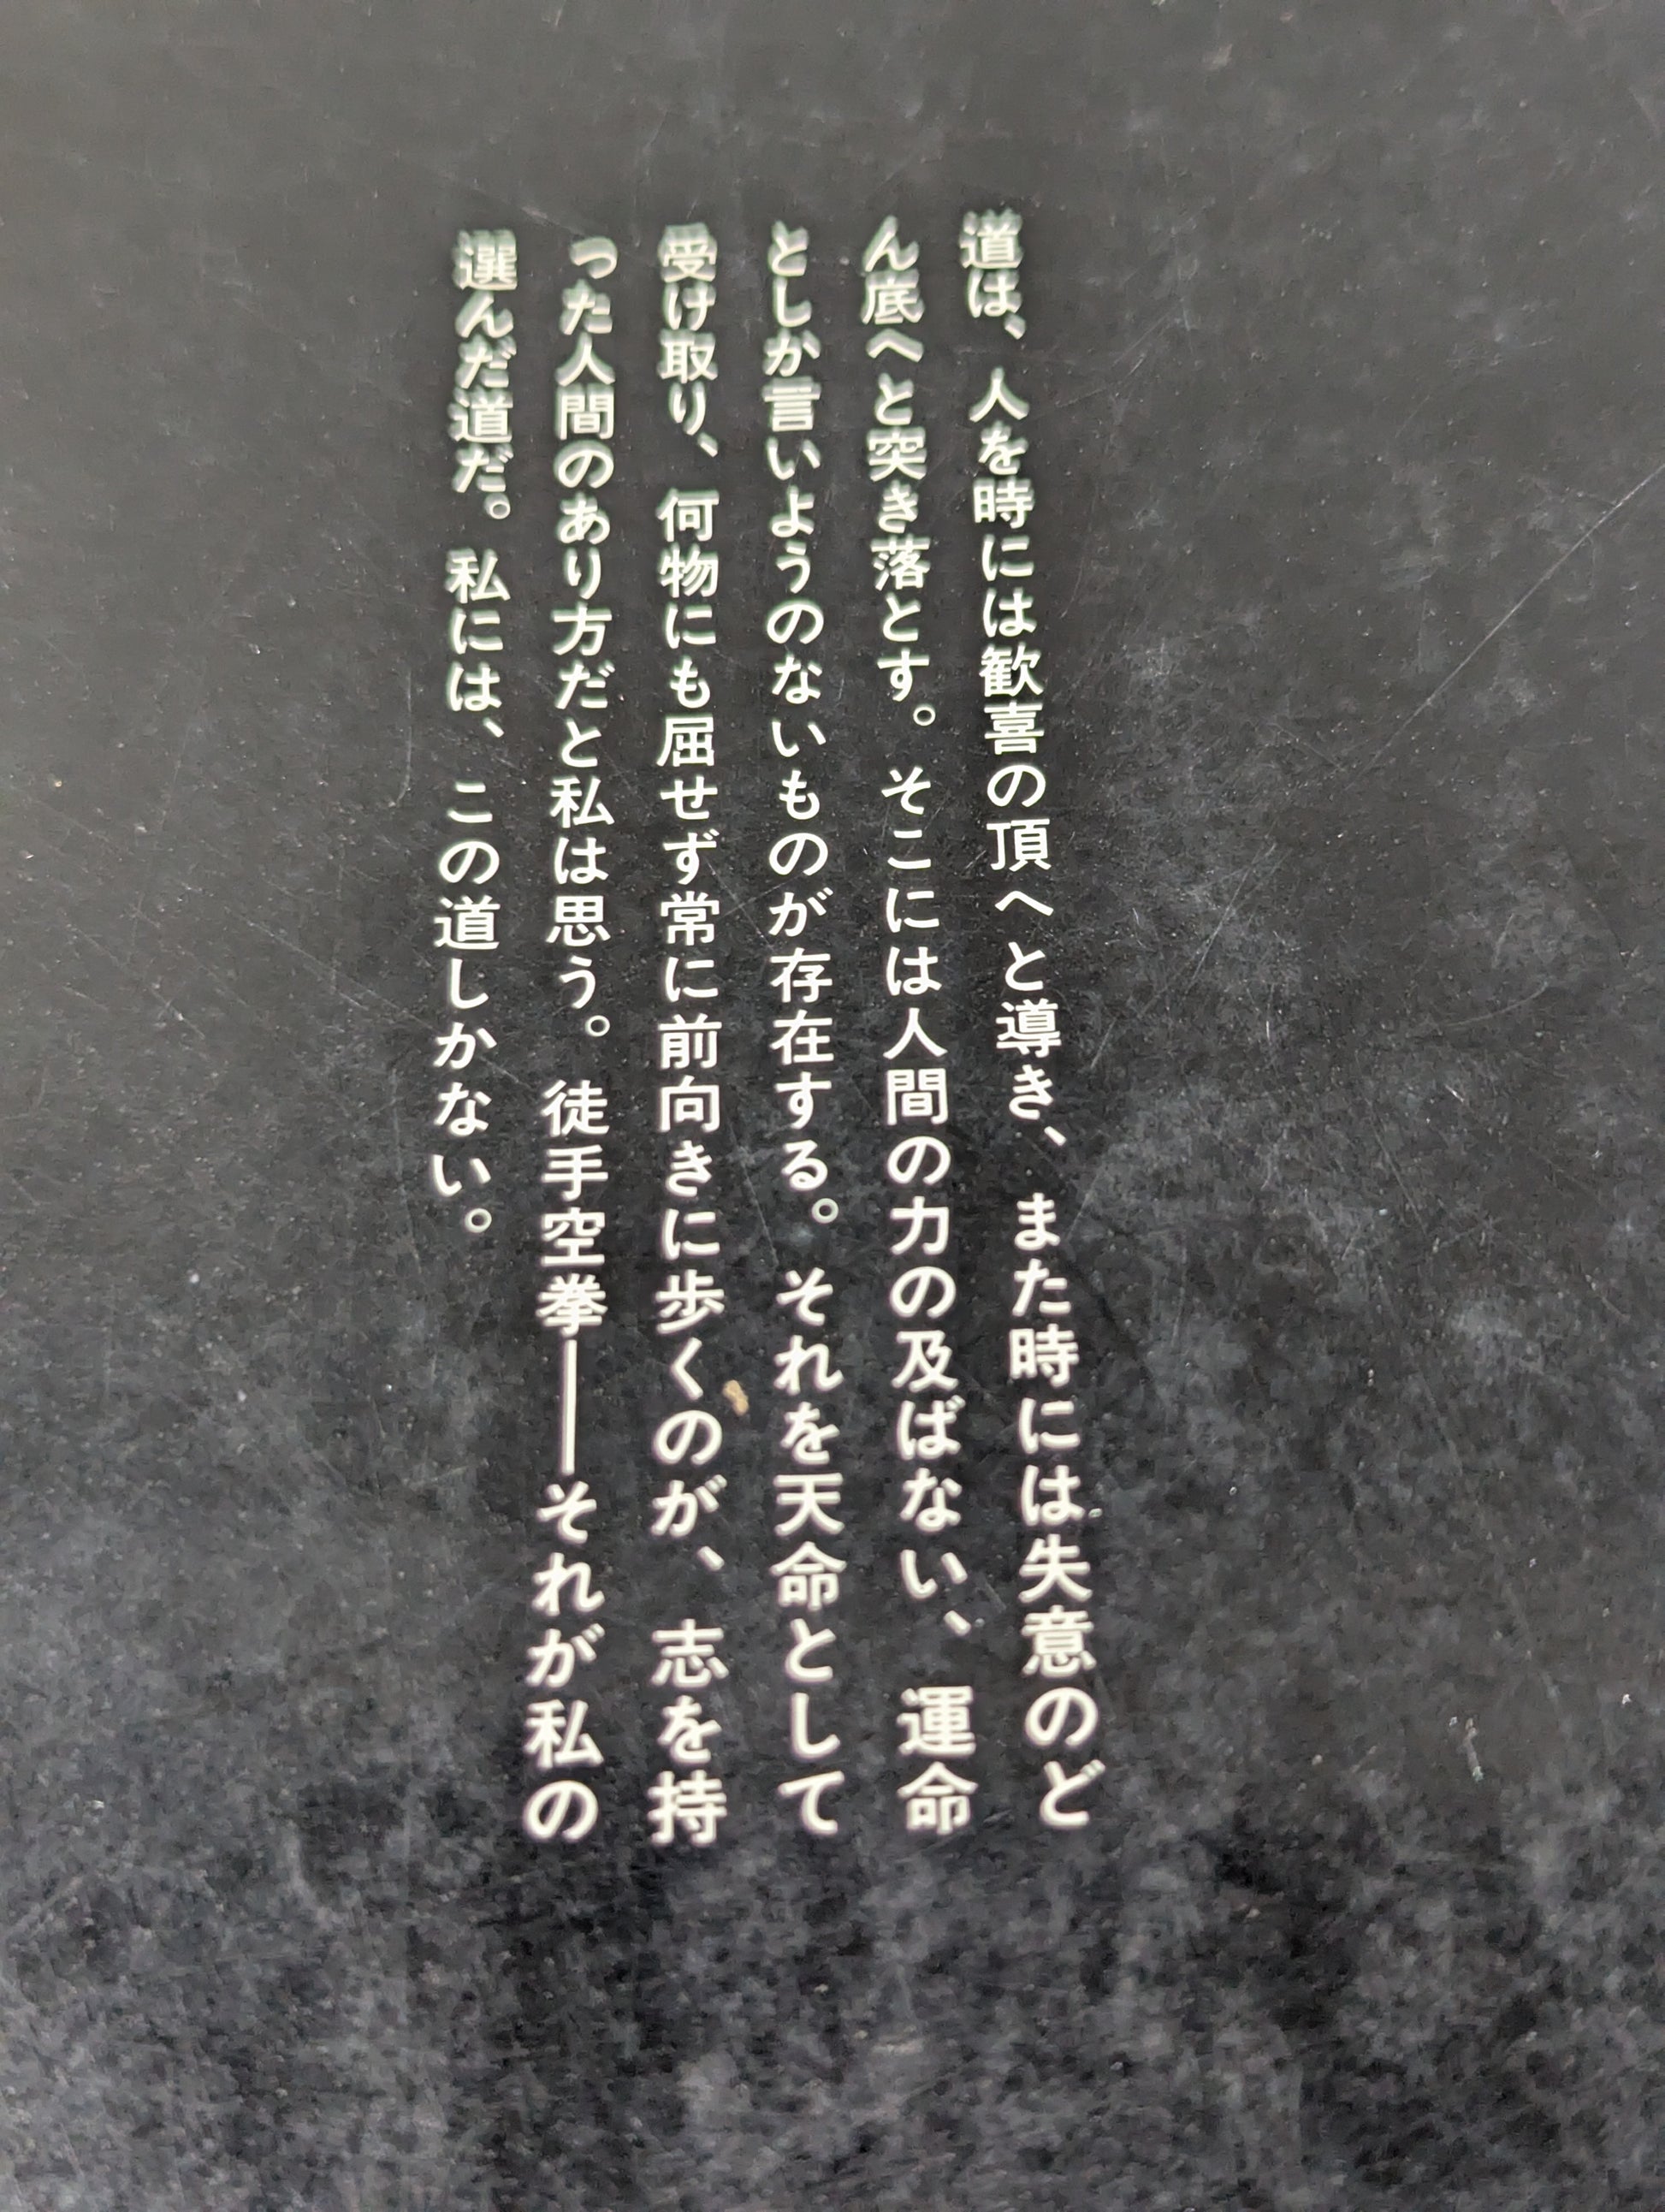 道は、人を時には歓喜の頂へと導き、また時には失意のど
ん底へと突き落とす。そこには人間の力の及ばない、運命
としか言いようのないものが存在する。それを天命として
受け取り、何物にも屈せず常に前向きに歩くのが、志を持
った人間のあり方だと私は思う。徒手空拳――それが私の
選んだ道だ。私には、この道しかない。